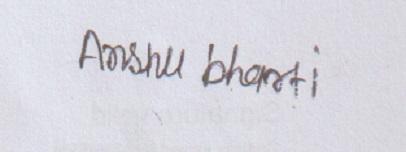 Anshu bharti